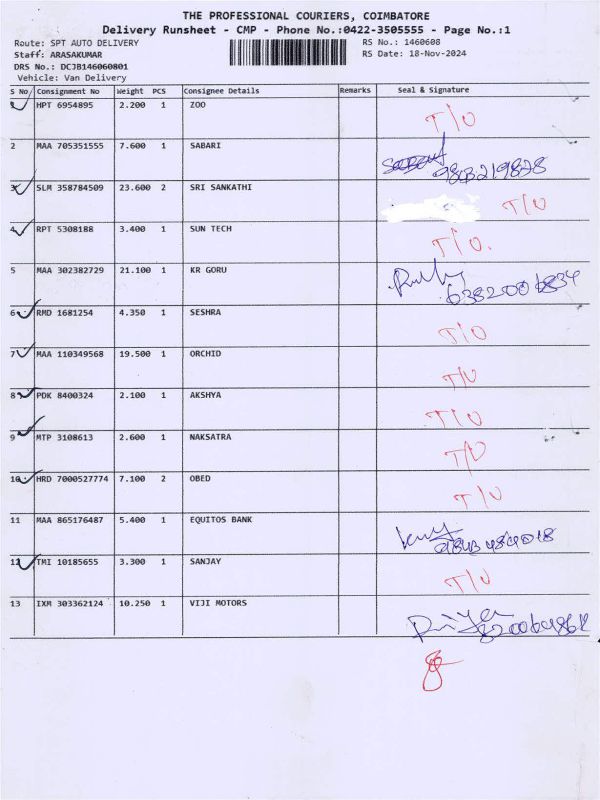 THE PROFESSIONAL COURIERS, COIMBATORE
Delivery Runsheet - CMP - Phone No.:0422-3505555 - Page No.:1
Route: SPT AUTO DELIVERY RS No.: 1460608
Staff: ARASAKUMAR RS Date: 18-Nov-2024
DRS No.: DCJB146060801
Vehicle: Van Delivery
S No Consignment No Weight PCS Consignee Details Remarks Seal & Signature
1 HPT 6954895 2.200 1 ZOO T/O
2 MAA 705351555 7.600 1 SABARI
9843219828
3 SLM 358784509 23.600 2 SRI SANKATHI T/O
4 RPT 5308188 3.400 1 SUN TECH T/O.
5 MAA 302382729 21.100 1 KR GORU
6 RMD 1681254 4.350 1 SESHRA T/O
7 MAA 110349568 19.500 1 ORCHID T/O
8 PDK 8400324 2.100 1 AKSHYA T/O
9 MTP 3108613 2.600 1 NAKSATRA T/O
10 HRD 7000527774 7.100 2 OBED T/O
11 MAA 865176487 5.400 1 EQUITOS BANK
12 TMI 10185655 3.300 1 SANJAY T/O
13 IXM 303362124 10.250 1 VIJI MOTORS Priya